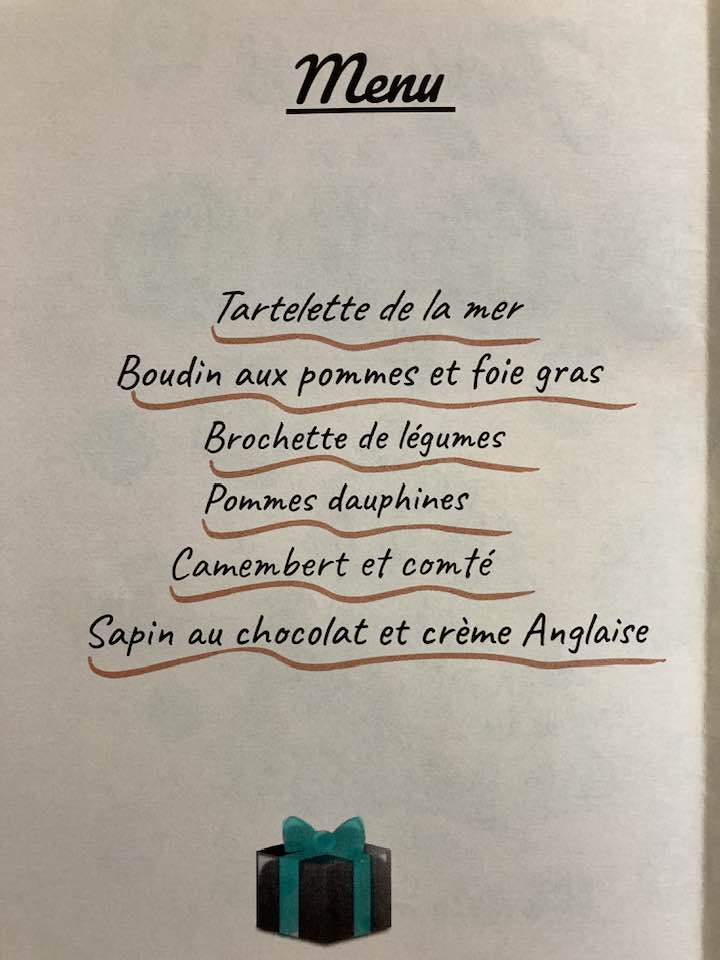 Menu
Tartelette de la mer
Boudin aux pommes et foie gras
Brochette de légumes
Pommes dauphines
Camembert et comté
Sapin au chocolat et crème Anglaise